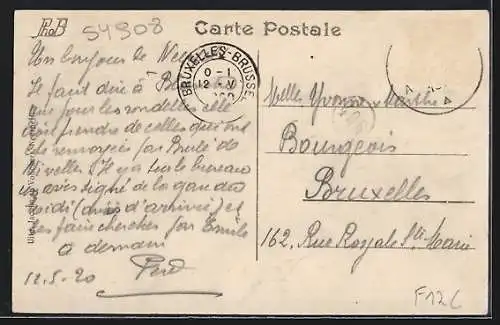 PhoB
54908
Carte Postale
Un bonjour de
Il faut dire à
que pour les rondelles elle
doit prendre de celles qui ont
renvoyées par
Nivelles. Il y a sur le bureau
avis signé de la gare du
midi (avis d'arrivée) et
les faire chercher par Emile
à demain
12.5-20
BRUXELLES-BRUSSEL
0-1
12 V
Melles Yvonne Marthe
Bourgeois
Bruxelles
162, Rue Royale Ste Marie
F12C